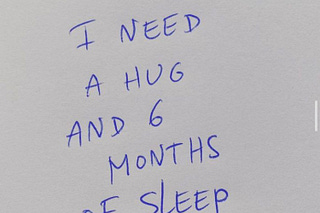 I NEED
A HUG
AND 6
MONTHS
OF SLEEP